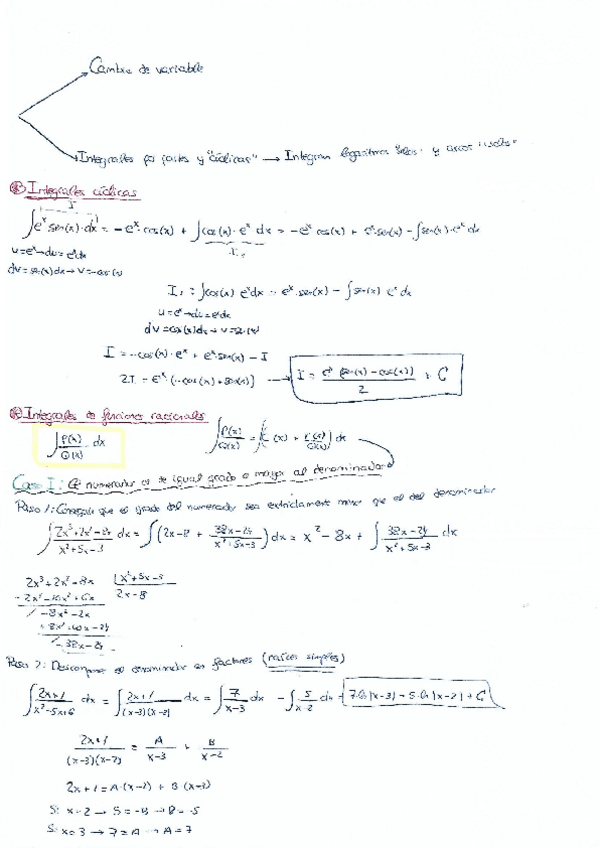 Cambio de variable
Integrales por partes y "cíclicas" → Integran logaritmos "solos" y arcos "solos"
Integrales cíclicas
I
∫e^x sen(x)·dx = -e^x·cos(x) + ∫cos(x)·e^x dx = -e^x cos(x) + e^x·sen(x) - ∫sen(x)·e^x dx
u=e^x → du=e^x dx
I₁
dv=sen(x)dx → v=-cos(x)
I₁ = ∫cos(x) e^x dx = e^x·sen(x) - ∫sen(x) e^x dx
u=e^x → du=e^x dx
dv=cos(x)dx → v=sen(x)
I = -cos(x)·e^x + e^x·sen(x) - I
2I = e^x·(-cos(x)+sen(x)) → I = e^x (sen(x) - cos(x))/2 + C
Integrales de funciones racionales
∫P(x)/Q(x) dx
∫P(x)/Q(x) = ∫(C(x) + r(x)/Q(x)) dx
Caso I: El numerador es de igual grado o mayor al denominador
Paso 1: Conseguir que el grado del numerador sea estrictamente menor que el del denominador
∫(2x³+2x²-8x)/(x²+5x-3) dx = ∫(2x-8 + (38x-24)/(x²+5x-3)) dx = x² - 8x + ∫(38x-24)/(x²+5x-3) dx
2x³+2x²-8x | x²+5x-3
-2x³-10x²+6x 2x-8
/ -8x²-2x
+8x²+40x-24
/ 38x-24
Paso 2: Descomponer el denominador en factores (raíces simples)
∫(2x+1)/(x²-5x+6) dx = ∫(2x+1)/((x-3)(x-2)) dx = ∫7/(x-3) dx - ∫5/(x-2) dx = 7·ln|x-3| - 5·ln|x-2| + C
(2x+1)/((x-3)(x-2)) = A/(x-3) + B/(x-2)
2x+1 = A·(x-2) + B·(x-3)
Si x=2 → 5=-B → B=-5
Si x=3 → 7=A → A=7